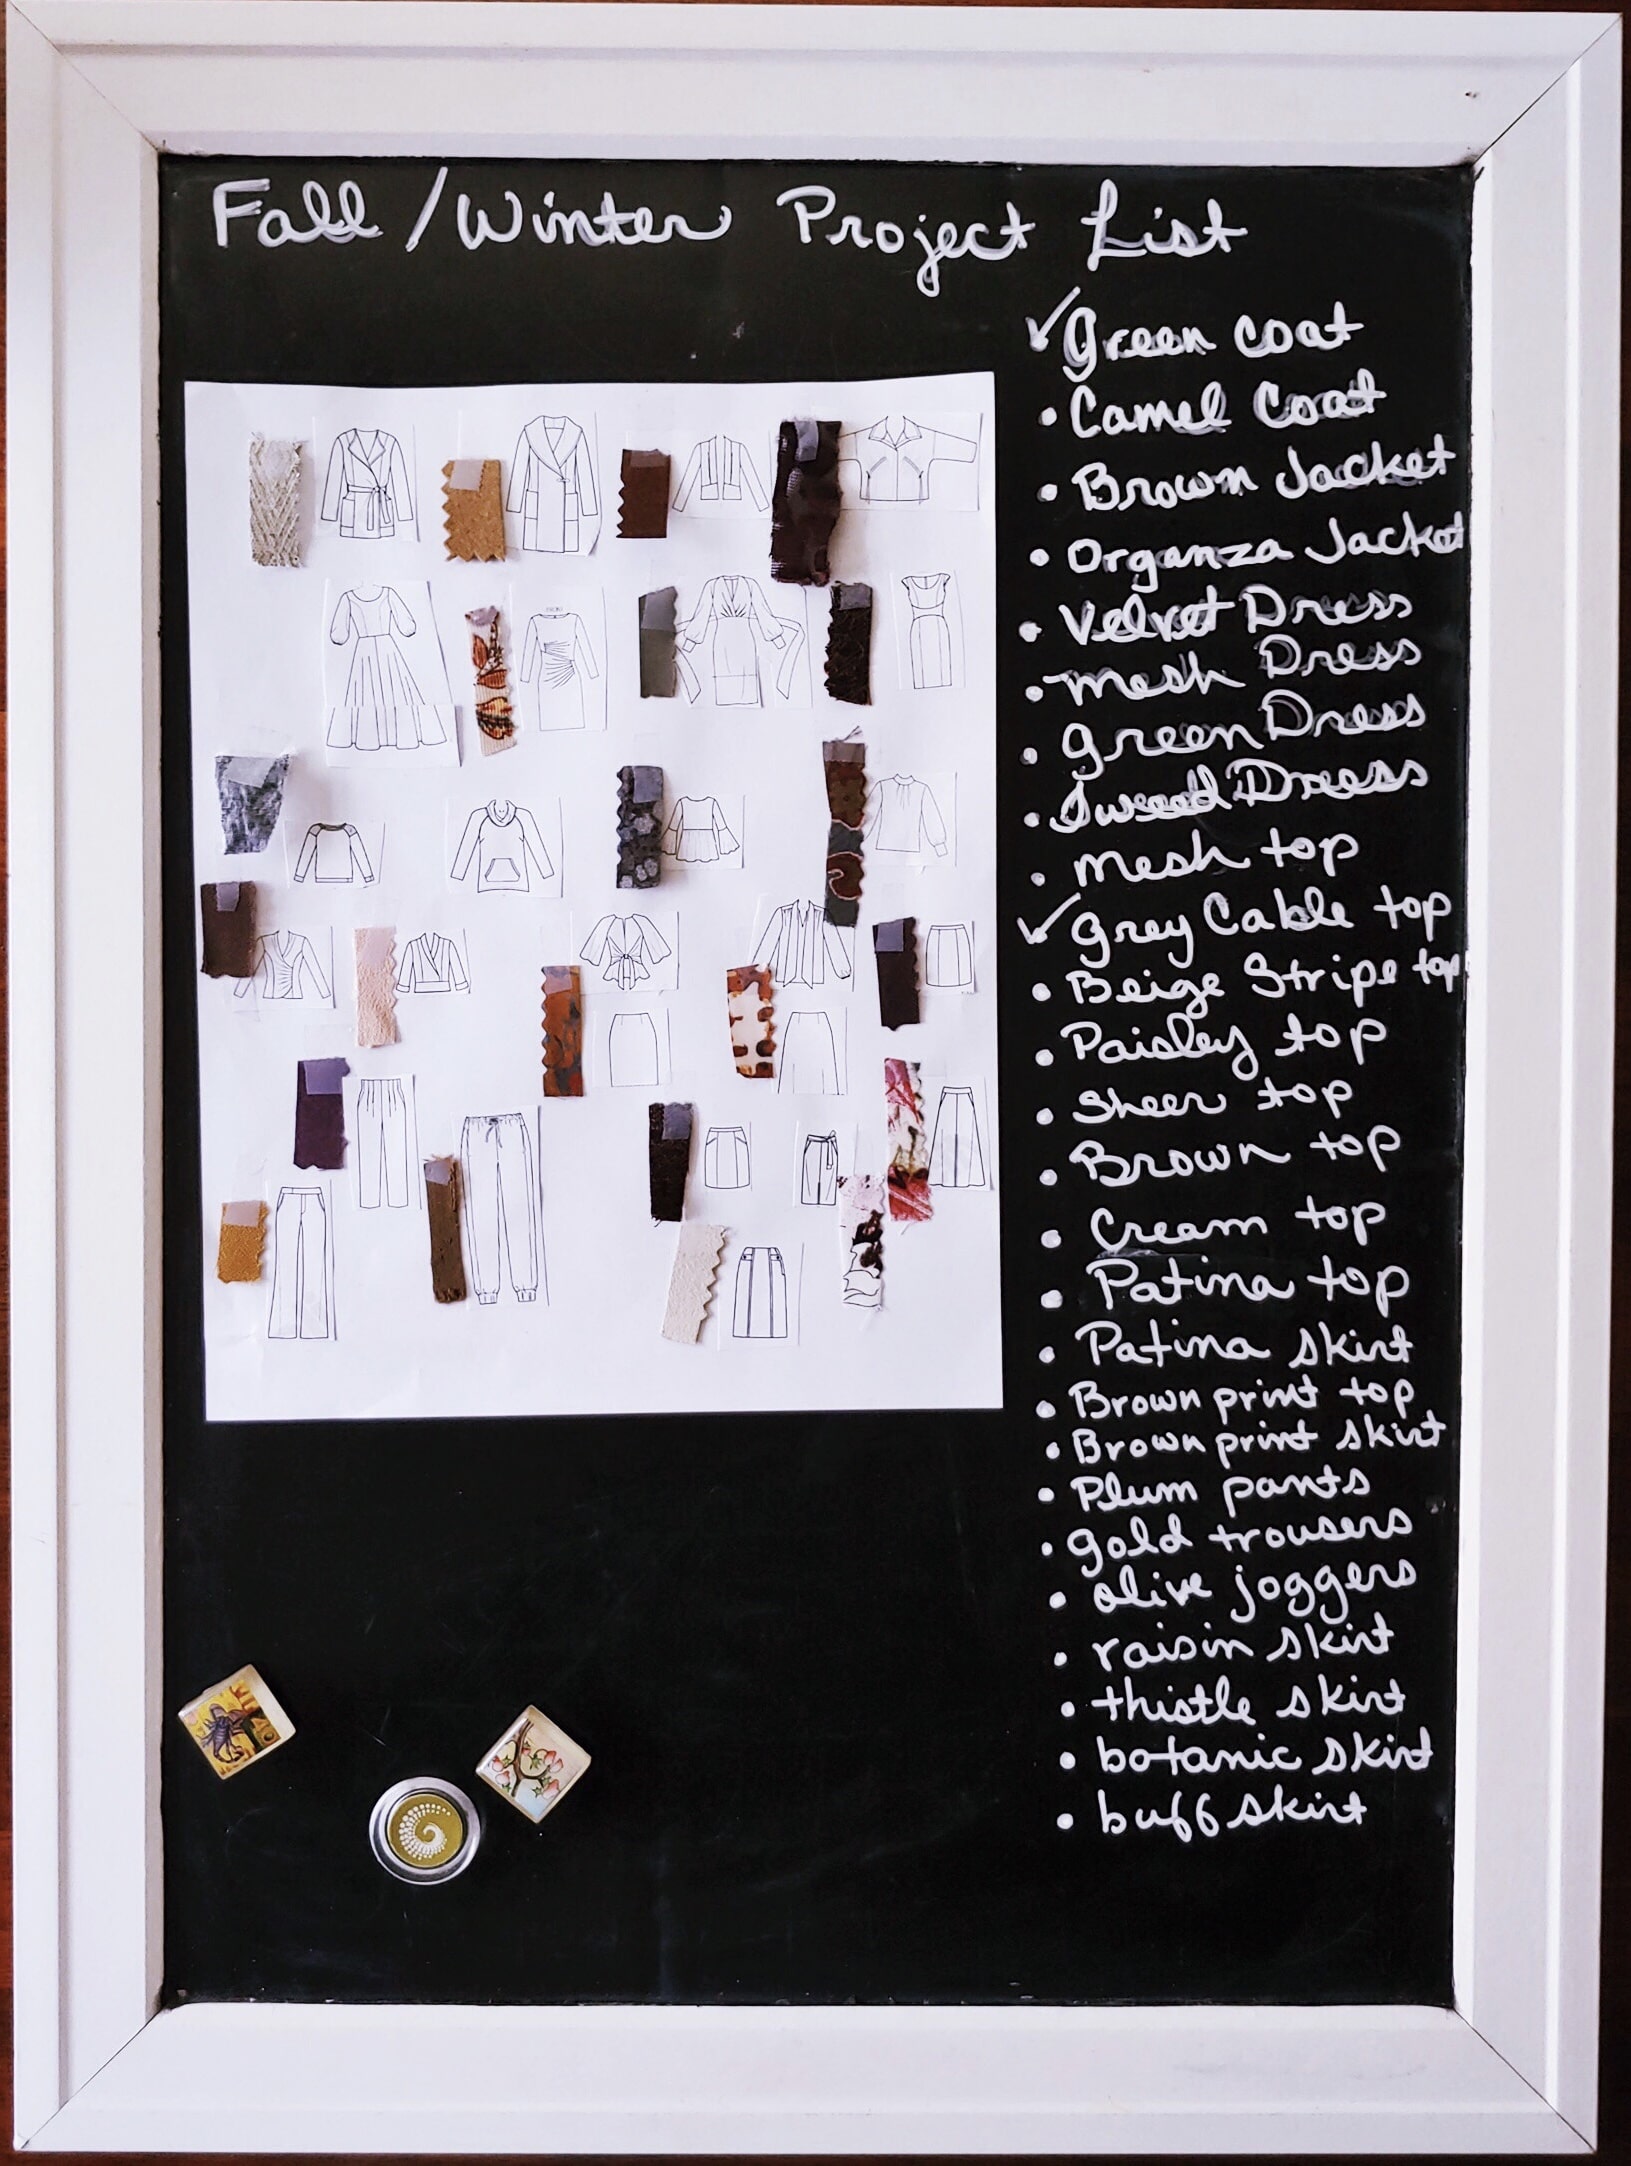 Fall / Winter Project List
✓ Green coat
• Camel Coat
• Brown Jacket
• Organza Jacket
• Velvet Dress
• mesh Dress
• green Dress
• Tweed Dress
• mesh top
✓ grey Cable top
• Beige Stripe top
• Paisley top
• Sheer top
• Brown top
• Cream top
• Patina top
• Patina skirt
• Brown print top
• Brown print skirt
• Plum pants
• gold trousers
• olive joggers
• raisin skirt
• thistle skirt
• botanic skirt
• buff skirt